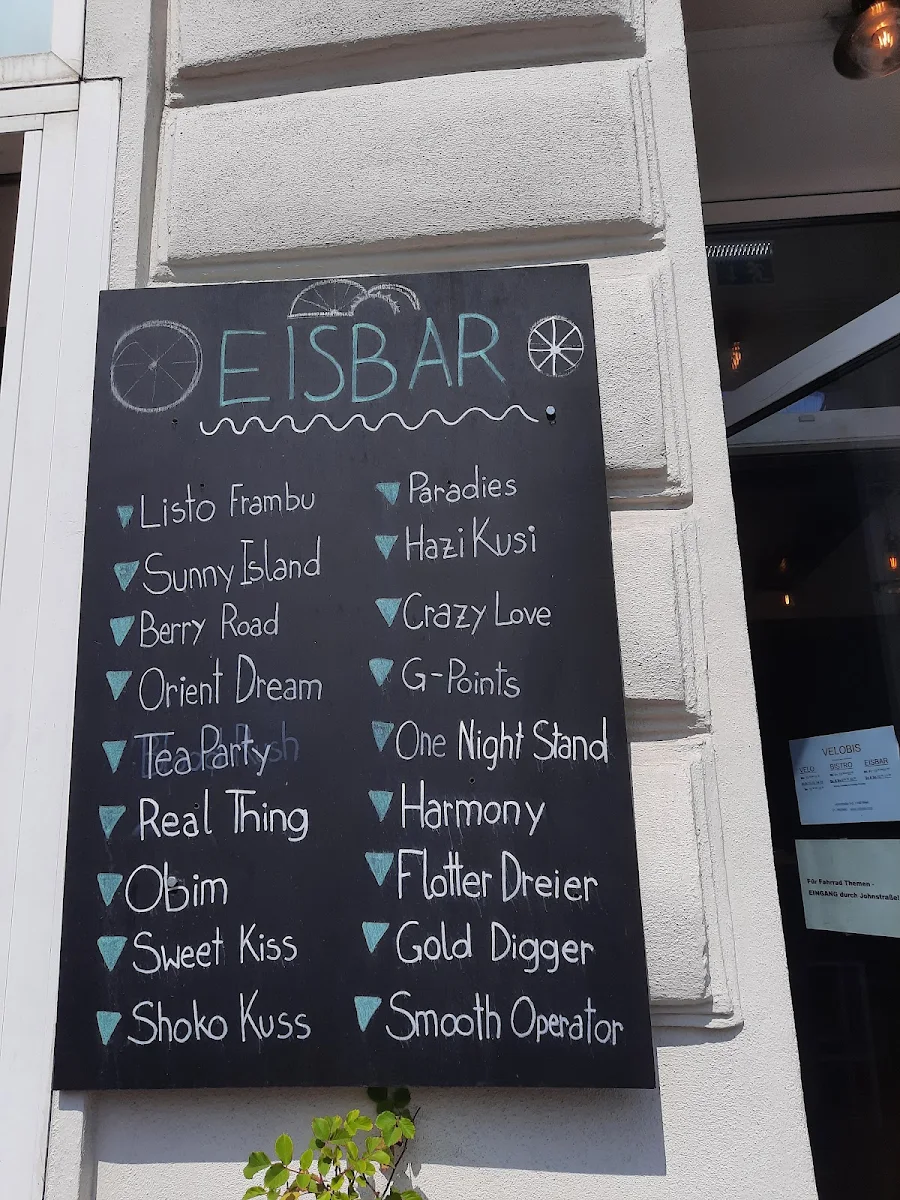 EISBAR
Listo Frambu
Sunny Island
Berry Road
Orient Dream
Tea Party
Real Thing
Obim
Sweet Kiss
Shoko Kuss
Paradies
Hazi Kusi
Crazy Love
G-Points
One Night Stand
Harmony
Flotter Dreier
Gold Digger
Smooth Operator
VELOBIS
VELO BISTRO EISBAR
Für Fahrrad Themen -
EINGANG durch Johnstraße!